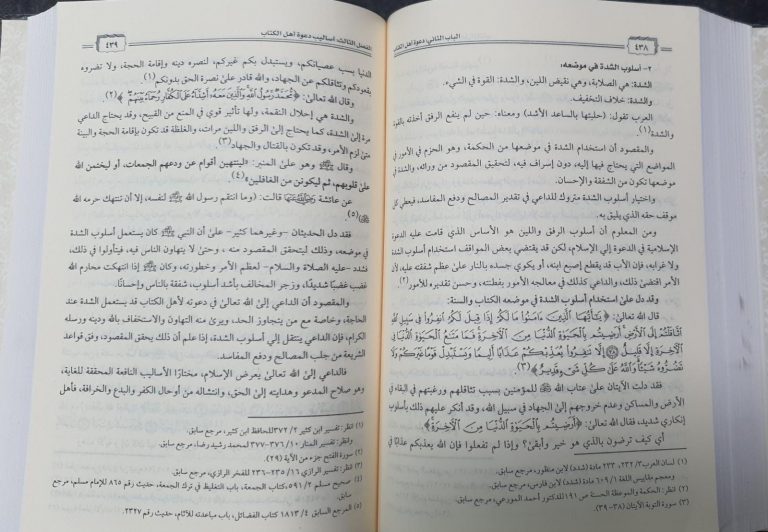 ٤٣٨
الباب الثاني: دعوة أهل الكتاب
٢- أسلوب الشدة في موضعه:
الشدة: هي الصلابة، وهي نقيض اللين، والشدة: القوة في الشيء.
والشدة: خلاف التخفيف.
العرب تقول: (حليتها بالساعد الأشد) ومعناه: حين لم ينفع الرفق أخذته بالقوة
والشدة(١).
والمقصود أن استخدام الشدة في موضعها من الحكمة، وهو الحزم في الأمور في
المواضع التي يحتاج فيها إليه، دون إسراف فيه، لتحقيق المقصود من ورائه، والشدة في
موضعها تكون من الشفقة والإحسان.
واختيار أسلوب الشدة متروك للداعي في تقدير المصالح ودفع المفاسد، فيعطي كل
موقف حقه الذي يليق به.
ومن المعلوم أن أسلوب الرفق واللين هو الأساس الذي قامت عليه الدعوة
الإسلامية في الدعوة إلى الإسلام، لكن قد يقتضي بعض المواقف استخدام أسلوب الشدة
ولا غرابه، فإن الأب قد يقطع إصبع ابنه، أو يكوي جسده بالنار على عظم شفقته عليه، لأن
الأمر اقتضى ذلك، والداعي كذلك في معالجته الأمور بفطنته، وحسن تقديره للأمور(٢)
وقد دل على استخدام أسلوب الشدة في موضعه الكتاب والسنة:
قال الله تعالى: ﴿يَٰٓأَيُّهَا ٱلَّذِينَ ءَامَنُواْ مَا لَكُمۡ إِذَا قِيلَ لَكُمُ ٱنفِرُواْ فِي سَبِيلِ ٱللَّهِ
ٱثَّاقَلۡتُمۡ إِلَى ٱلۡأَرۡضِۚ أَرَضِيتُم بِٱلۡحَيَوٰةِ ٱلدُّنۡيَا مِنَ ٱلۡأٓخِرَةِۚ فَمَا مَتَٰعُ ٱلۡحَيَوٰةِ ٱلدُّنۡيَا فِي
ٱلۡأٓخِرَةِ إِلَّا قَلِيلٌ ٣٨ إِلَّا تَنفِرُواْ يُعَذِّبۡكُمۡ عَذَابًا أَلِيمٗا وَيَسۡتَبۡدِلۡ قَوۡمًا غَيۡرَكُمۡ وَلَا
تَضُرُّوهُ شَيۡـٔٗاۗ وَٱللَّهُ عَلَىٰ كُلِّ شَيۡءٖ قَدِيرٌ﴾(٣).
فقد دلت الآيتان على عتاب الله ﷻ للمؤمنين بسبب تثاقلهم ورغبتهم في البقاء في
الأرض والمساكن وعدم خروجهم إلى الجهاد في سبيل الله، وقد أنكر عليهم ذلك بأسلوب
إنكاري شديد، فقال الله تعالى: ﴿أَرَضِيتُم بِٱلۡحَيَوٰةِ ٱلدُّنۡيَا مِنَ ٱلۡأٓخِرَةِ﴾.
أي كيف ترضون بالذي هو خير وأبقى؟ وإذا لم تفعلوا فإن الله يعذبكم عذابًا في
(١) لسان العرب ٢٣٢/٣، ٢٣٣ مادة (شدد) لابن منظور، مرجع سابق.
ومعجم مقاييس اللغة ٦٠٩/١ مادة (شدد) لابن فارس، مرجع سابق.
(٢) انظر: الحكمة والموعظة الحسنة ص ١٩١ للدكتور أحمد المورعي، مرجع سابق.
(٣) سورة التوبة الآيتان (٣٨- ٣٩).
الفصل الثالث: أساليب دعوة أهل الكتاب
٤٣٩
الدنيا بسب عصيانكم، ويستبدل بكم غيركم، لنصره دينه وإقامة الحجة، ولا تضروه
بقعودكم وتثاقلكم عن الجهاد، والله قادر على نصرة الحق بدونكم(١)
وقال الله تعالى: ﴿مُّحَمَّدٌ رَّسُولُ ٱللَّهِۚ وَٱلَّذِينَ مَعَهُۥٓ أَشِدَّآءُ عَلَى ٱلۡكُفَّارِ رُحَمَآءُ بَيۡنَهُمۡ﴾(٢).
والشدة هي إحلال النقمة، ولها تأثير قوي في المنع من القبيح، وقد يحتاج الداعي
مرة إلى الشدة، كما يحتاج إلى الرفق واللين مرات، والغلظة قد تكون بإقامة الحجة والبينة
متى لزم الأمر، وقد تكون بالقتال والجهاد(٣)
وقال ﷺ وهو على المنبر: «لينتهين أقوام عن ودعهم الجمعات، أو ليختمن الله
على قلوبهم، ثم ليكونن من الغافلين»(٤).
عن عائشة رضي الله عنها قالت: (وما انتقم رسول الله ﷺ لنفسه، إلا أن تنتهك حرمه الله
ﷻ)(٥)
فقد دل الحديثان -وغيرهما كثير- على أن النبي ﷺ كان يستعمل أسلوب الشدة
في موضعه، وذلك ليتحقق المقصود منه، وحتى لا يتهاون الناس فيه، فيتأولوا في ذلك،
فشدد -عليه الصلاة والسلام- لعظم الأمر وخطورته، وكان ﷺ إذا انتهكت محارم الله
غضب غضبًا شديدًا، وزجر المخالف بأشد أسلوب، شفقة بالناس وإحسانًا.
والمقصود أن الداعي إلى الله تعالى في دعوته لأهل الكتاب قد يستعمل الشدة عند
الحاجة، وخاصة مع من يتجاوز الحد، ويرى منه التهاون والاستخفاف بالله ودينه ورسله
الكرام، فإن الداعي ينتقل إلى أسلوب الشدة، إذا علم أن ذلك يحقق المقصود، وفق قواعد
الشريعة من جلب المصالح ودفع المفاسد.
فالداعي إلى الله تعالى يعرض الإسلام، مختارًا الأساليب النافعة المحققة للغاية،
وهو صلاح المدعو وهدايته إلى الحق، وانتشاله من أوحال الكفر والبدع والخرافة، فأهل
(١) انظر: تفسير ابن كثير ٣٧٢/٢ للحافظ ابن كثير، مرجع سابق.
وانظر: تفسير المنار ١٠/ ٣٧٦-٣٧٧ لمحمد رشيد رضا، مرجع سابق.
(٢) سورة الفتح جزء من الآية (٢٩).
(٣) انظر: تفسير الرازي ١٦/ ٢٣٥-٢٣٦ للفخر الرازي، مرجع سابق.
(٤) صحيح مسلم ٥٩١/٢، كتاب الجمعة، باب التغليظ في ترك الجمعة، حديث رقم ٨٦٥ للإمام مسلم، مرجع
سابق.
(٥) المرجع السابق ٤/ ١٨١٣ كتاب الفضائل، باب مباعدته للآثام، حديث رقم ٢٣٢٧.